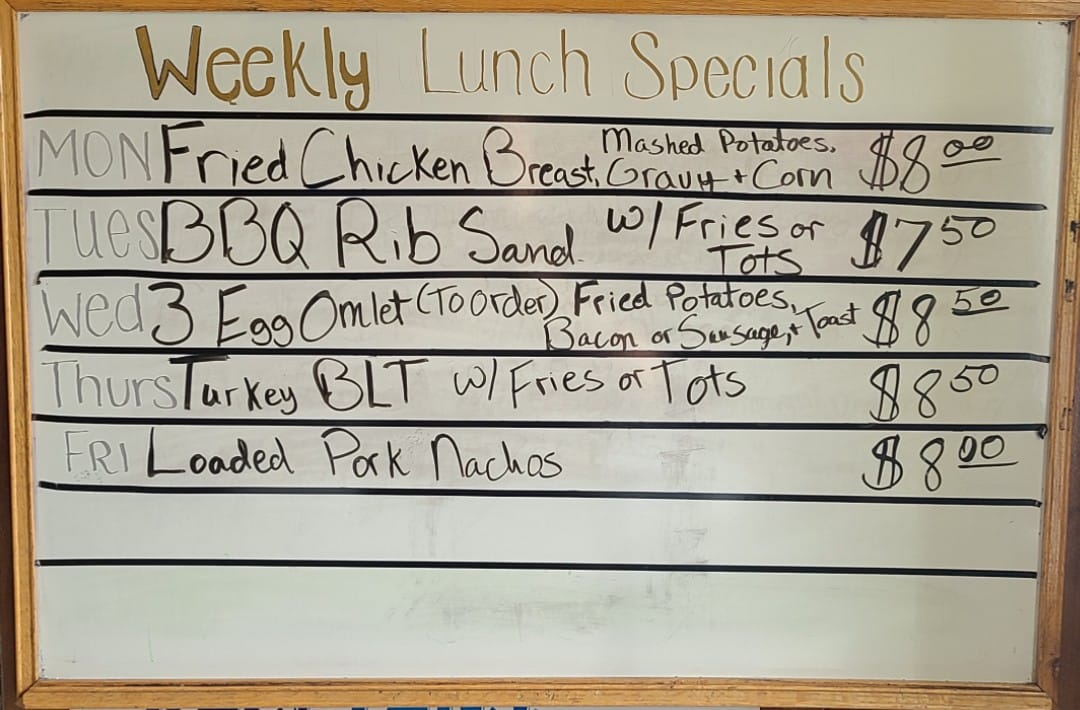 Weekly Lunch Specials
MON Fried Chicken Breast, Mashed Potatoes, Gravy + Corn $8 00
Tues BBQ Rib Sand. w/ Fries or Tots $7 50
Wed 3 Egg Omlet (To Order) Fried Potatoes, Bacon or Sausage, + Toast $8 50
Thurs Turkey BLT w/ Fries or Tots $8 50
FRI Loaded Pork Nachos $8 00